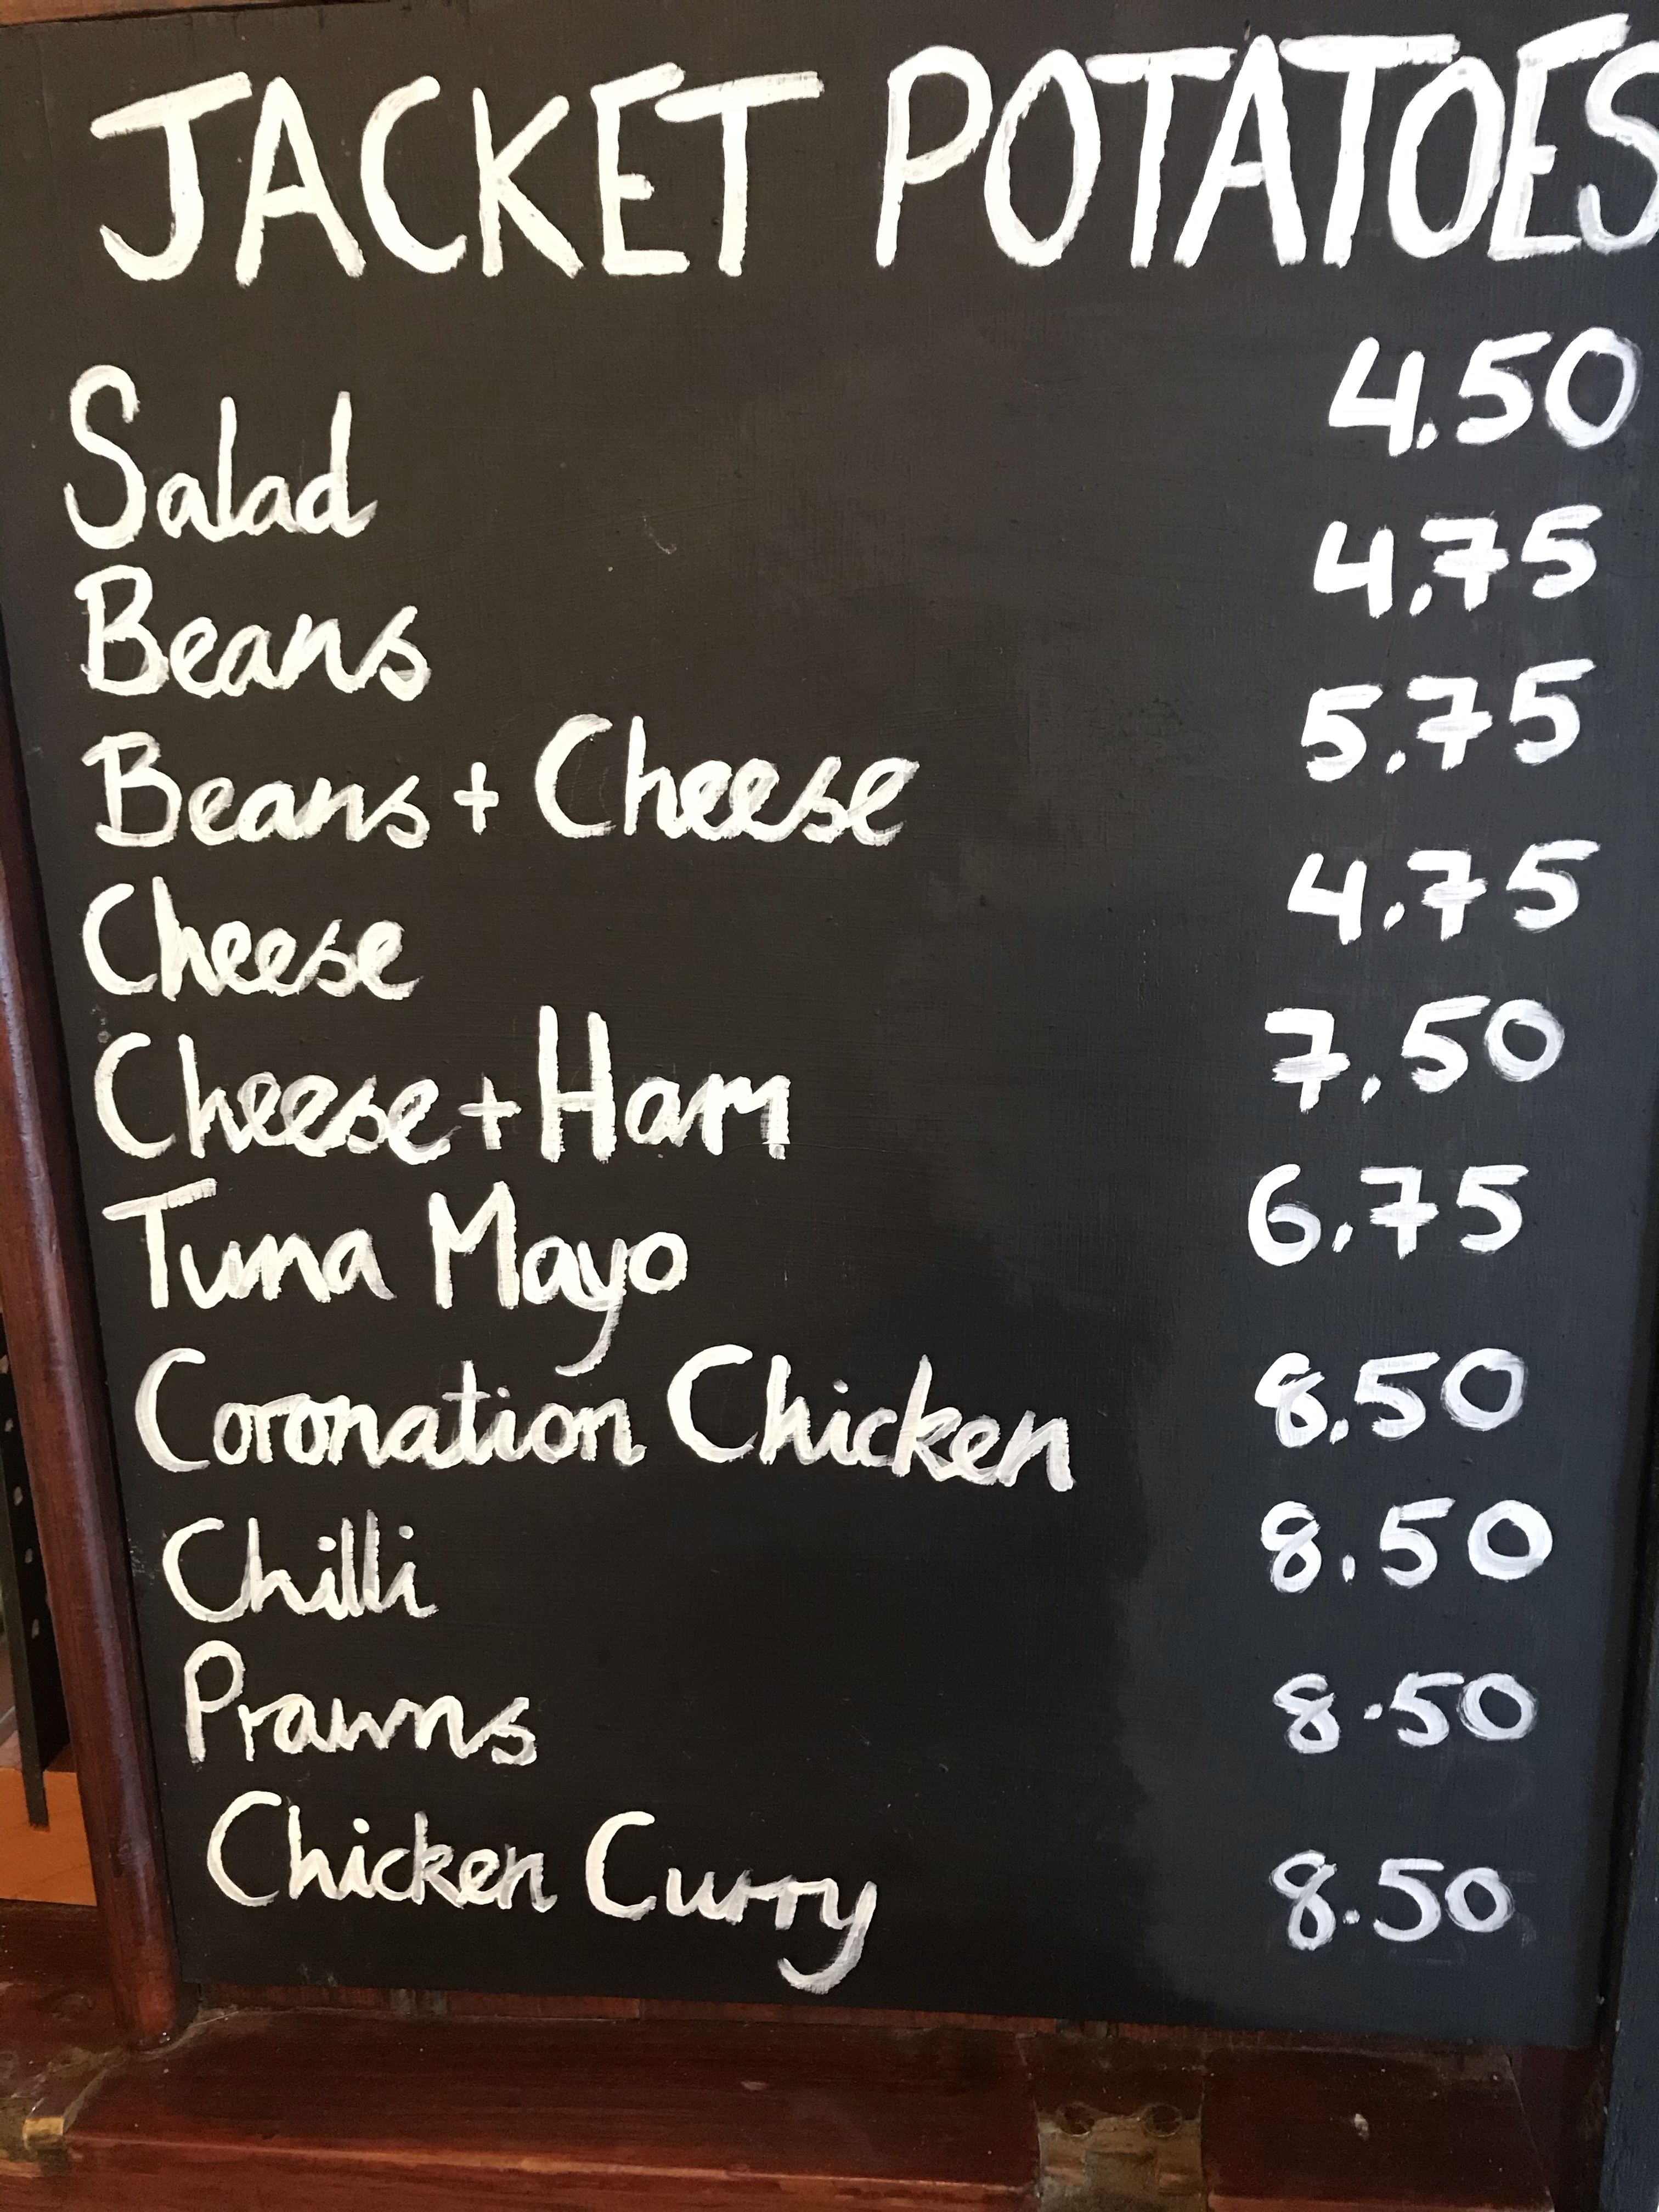 JACKET POTATOES
Salad 4.50
Beans 4.75
Beans + Cheese 5.75
Cheese 4.75
Cheese + Ham 7.50
Tuna Mayo 6.75
Coronation Chicken 8.50
Chilli 8.50
Prawns 8.50
Chicken Curry 8.50